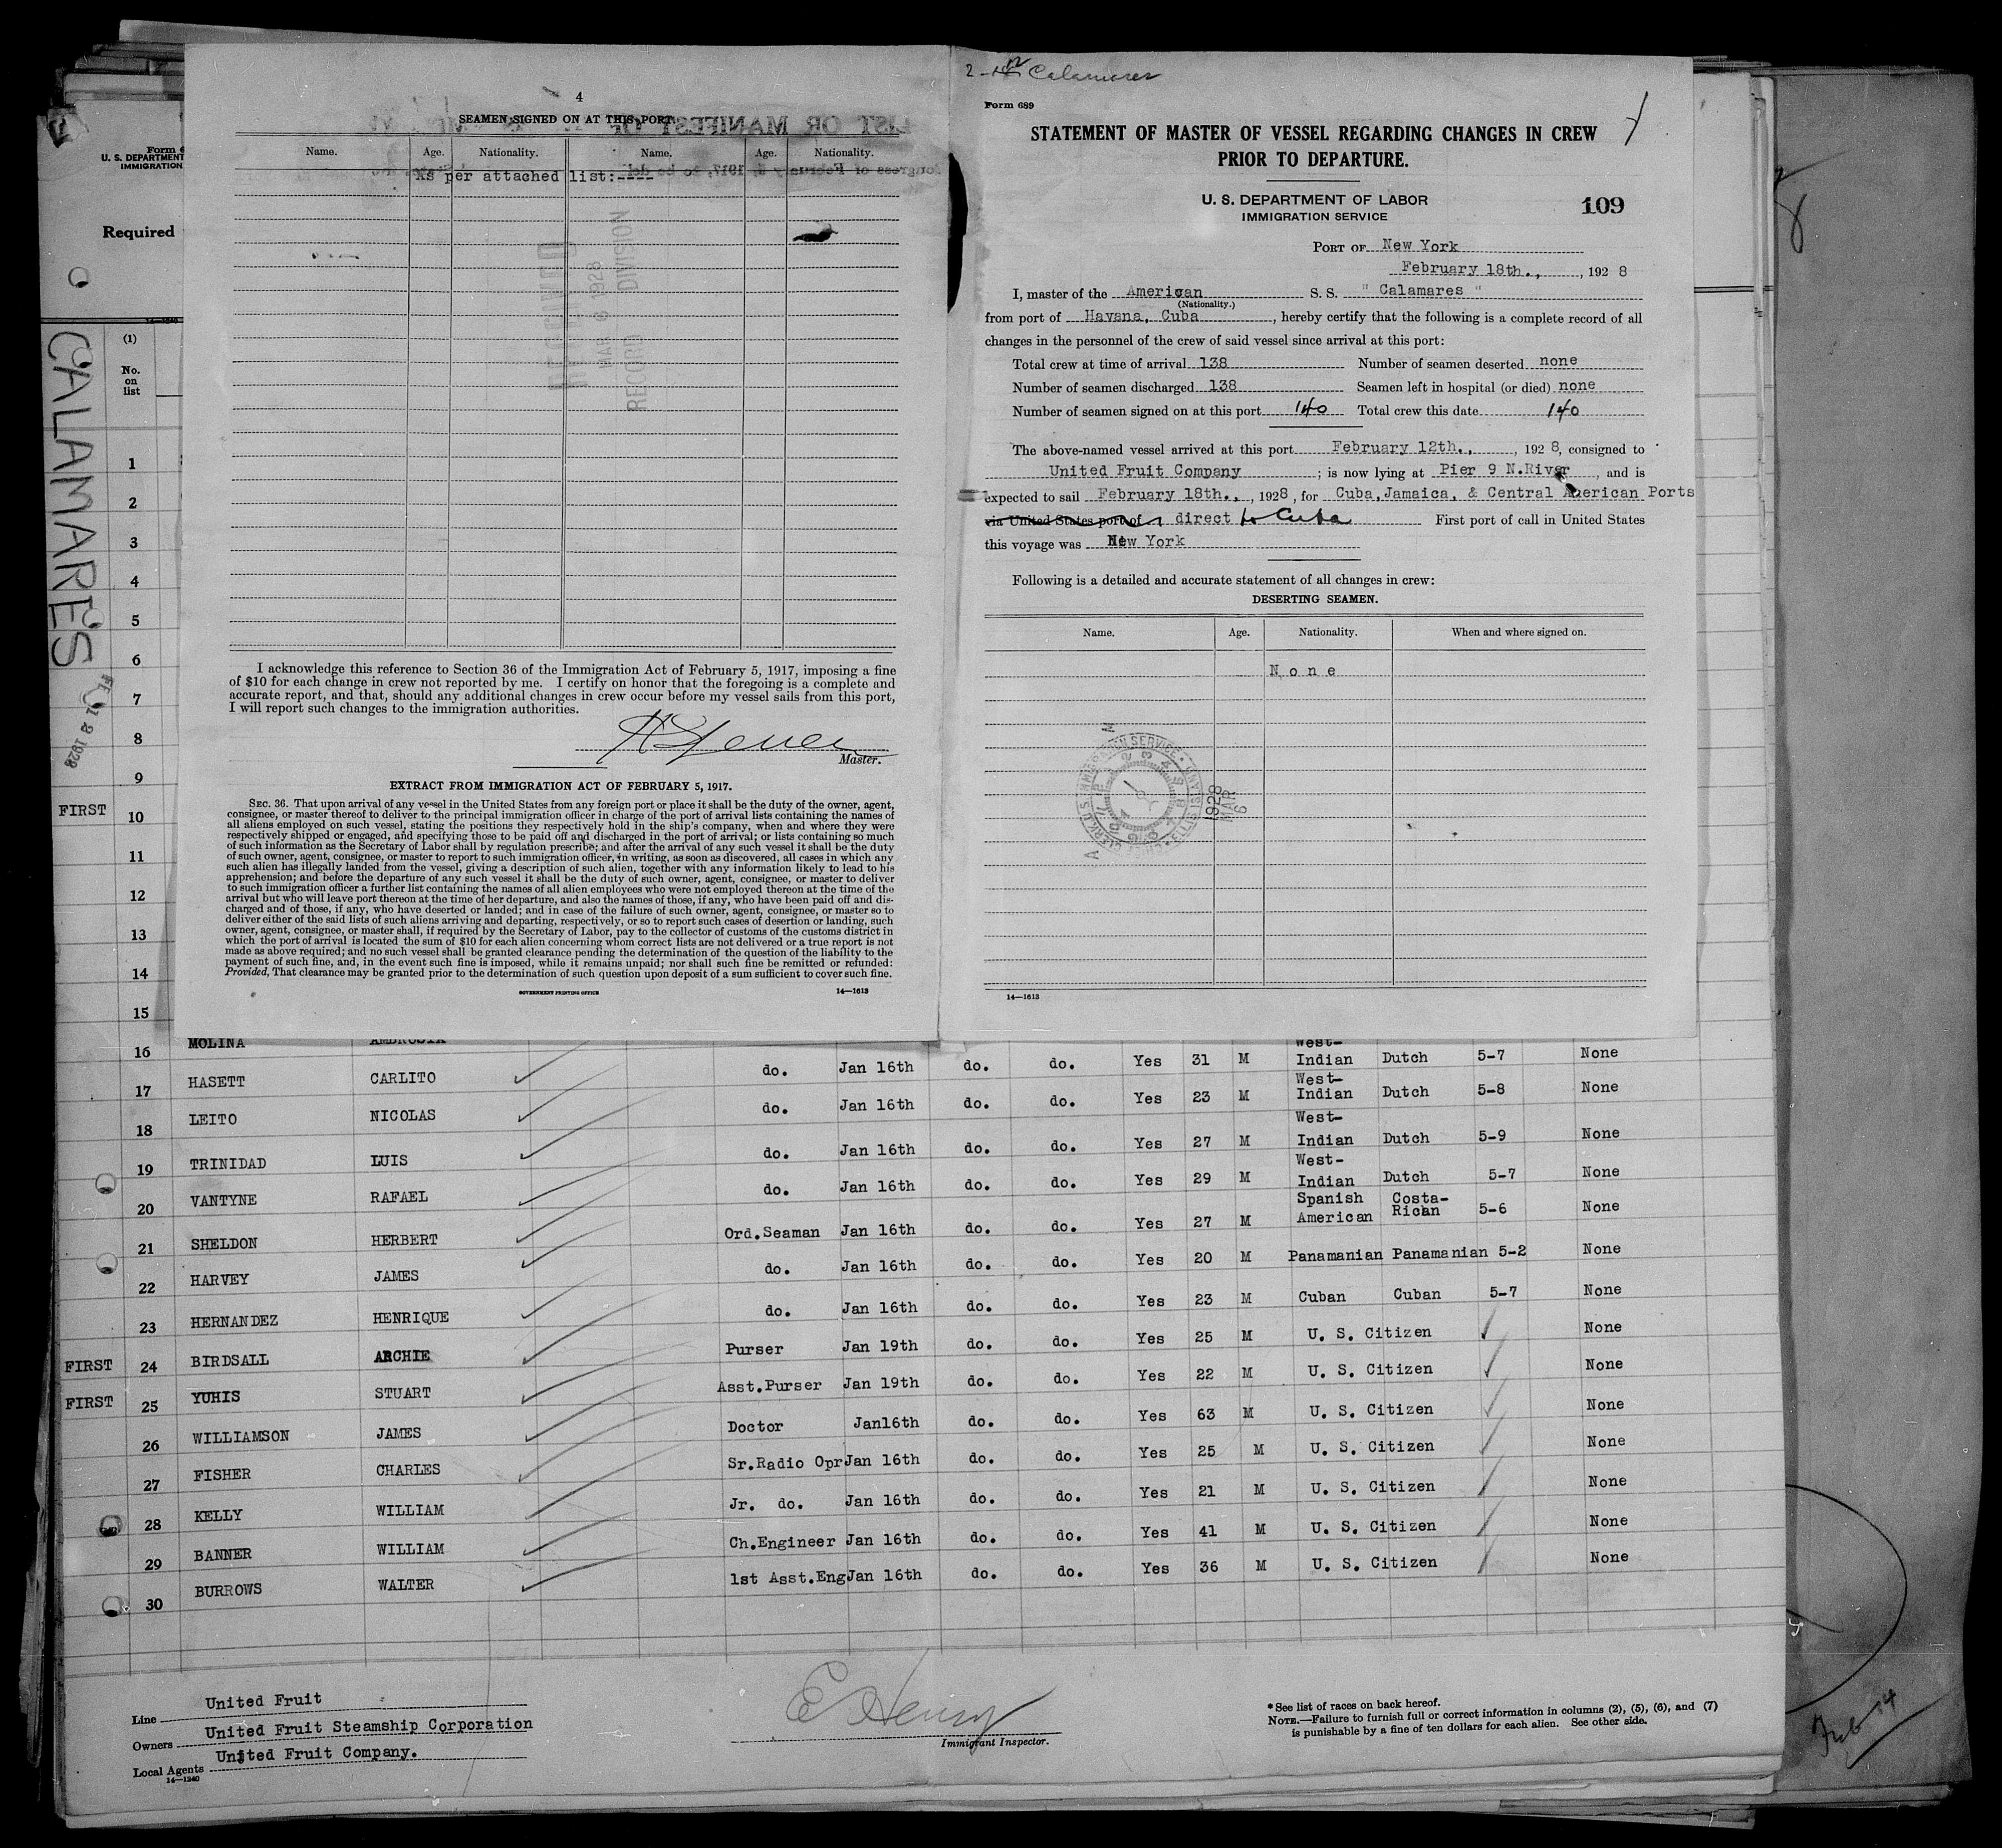 4
SEAMEN SIGNED ON AT THIS PORT.
Name. Age. Nationality. Name. Age. Nationality.
As per attached list:----
RECEIVED
MAR 6 1928
RECORD DIVISION
I acknowledge this reference to Section 36 of the Immigration Act of February 5, 1917, imposing a fine
of $10 for each change in crew not reported by me. I certify on honor that the foregoing is a complete and
accurate report, and that, should any additional changes in crew occur before my vessel sails from this port,
I will report such changes to the immigration authorities.
Master.
EXTRACT FROM IMMIGRATION ACT OF FEBRUARY 5, 1917.
SEC. 36. That upon arrival of any vessel in the United States from any foreign port or place it shall be the duty of the owner, agent,
consignee, or master thereof to deliver to the principal immigration officer in charge of the port of arrival lists containing the names of
all aliens employed on such vessel, stating the positions they respectively hold in the ship's company, when and where they were
respectively shipped or engaged, and specifying those to be paid off and discharged in the port of arrival; or lists containing so much
of such information as the Secretary of Labor shall by regulation prescribe; and after the arrival of any such vessel it shall be the duty
of such owner, agent, consignee, or master to report to such immigration officer, in writing, as soon as discovered, all cases in which any
such alien has illegally landed from the vessel, giving a description of such alien, together with any information likely to lead to his
apprehension; and before the departure of any such vessel it shall be the duty of such owner, agent, consignee, or master to deliver
to such immigration officer a further list containing the names of all alien employees who were not employed thereon at the time of the
arrival but who will leave port thereon at the time of her departure, and also the names of those, if any, who have been paid off and dis-
charged and of those, if any, who have deserted or landed; and in case of the failure of such owner, agent, consignee, or master so to
deliver either of the said lists of such aliens arriving and departing, respectively, or so to report such cases of desertion or landing, such
owner, agent, consignee, or master shall, if required by the Secretary of Labor, pay to the collector of customs of the customs district in
which the port of arrival is located the sum of $10 for each alien concerning whom correct lists are not delivered or a true report is not
made as above required; and no such vessel shall be granted clearance pending the determination of the question of the liability to the
payment of such fine, and, in the event such fine is imposed, while it remains unpaid; nor shall such fine be remitted or refunded:
Provided, That clearance may be granted prior to the determination of such question upon deposit of a sum sufficient to cover such fine.
GOVERNMENT PRINTING OFFICE 14—1613
Calamares
Form 689
STATEMENT OF MASTER OF VESSEL REGARDING CHANGES IN CREW
PRIOR TO DEPARTURE.
U. S. DEPARTMENT OF LABOR
IMMIGRATION SERVICE
109
PORT OF New York
February 18th., , 192 8
I, master of the American S. S. " Calamares "
(Nationality.)
from port of Havana, Cuba , hereby certify that the following is a complete record of all
changes in the personnel of the crew of said vessel since arrival at this port:
Total crew at time of arrival 138 Number of seamen deserted none
Number of seamen discharged 138 Seamen left in hospital (or died) none
Number of seamen signed on at this port 140 Total crew this date 140
The above-named vessel arrived at this port February 12th., , 192 8, consigned to
United Fruit Company ; is now lying at Pier 9 N.River , and is
expected to sail February 18th., , 1928 , for Cuba,Jamaica, & Central American Ports
via United States port of direct to Cuba First port of call in United States
this voyage was New York
Following is a detailed and accurate statement of all changes in crew:
DESERTING SEAMEN.
Name. Age. Nationality. When and where signed on.
None
1928
MAR
6
14—1613
U. S. DEPARTMENT
IMMIGRATION
Required
CALAMARES
(1)
No.
on
list
1
2
3
4
5
6
7
8
9
FIRST 10
11
12
13
14
15
16 MOLINA AMBROSIA do. Jan 16th do. do. Yes 31 M West-Indian Dutch 5-7 None
17 HASETT CARLITO do. Jan 16th do. do. Yes 23 M West-Indian Dutch 5-8 None
18 LEITO NICOLAS do. Jan 16th do. do. Yes 27 M West-Indian Dutch 5-9 None
19 TRINIDAD LUIS do. Jan 16th do. do. Yes 29 M West-Indian Dutch 5-7 None
20 VANTYNE RAFAEL Ord.Seaman Jan 16th do. do. Yes 27 M Spanish American Costa-Rican 5-6 None
21 SHELDON HERBERT do. Jan 16th do. do. Yes 20 M Panamanian Panamanian 5-2 None
22 HARVEY JAMES do. Jan 16th do. do. Yes 23 M Cuban Cuban 5-7 None
23 HERNANDEZ HENRIQUE Purser Jan 19th do. do. Yes 25 M U. S. Citizen None
FIRST 24 BIRDSALL ARCHIE Asst.Purser Jan 19th do. do. Yes 22 M U. S. Citizen None
FIRST 25 YUHIS STUART Doctor Jan16th do. do. Yes 63 M U. S. Citizen None
26 WILLIAMSON JAMES Sr.Radio Opr Jan 16th do. do. Yes 25 M U. S. Citizen None
27 FISHER CHARLES Jr. do. Jan 16th do. do. Yes 21 M U. S. Citizen None
28 KELLY WILLIAM Ch.Engineer Jan 16th do. do. Yes 41 M U. S. Citizen None
29 BANNER WILLIAM 1st Asst.Eng Jan 16th do. do. Yes 36 M U. S. Citizen None
30 BURROWS WALTER
Line United Fruit
Owners United Fruit Steamship Corporation
Local Agents United Fruit Company.
14—1240
E Henry
Immigrant Inspector.
* See list of races on back hereof.
NOTE.—Failure to furnish full or correct information in columns (2), (5), (6), and (7)
is punishable by a fine of ten dollars for each alien. See other side.
Feb 14